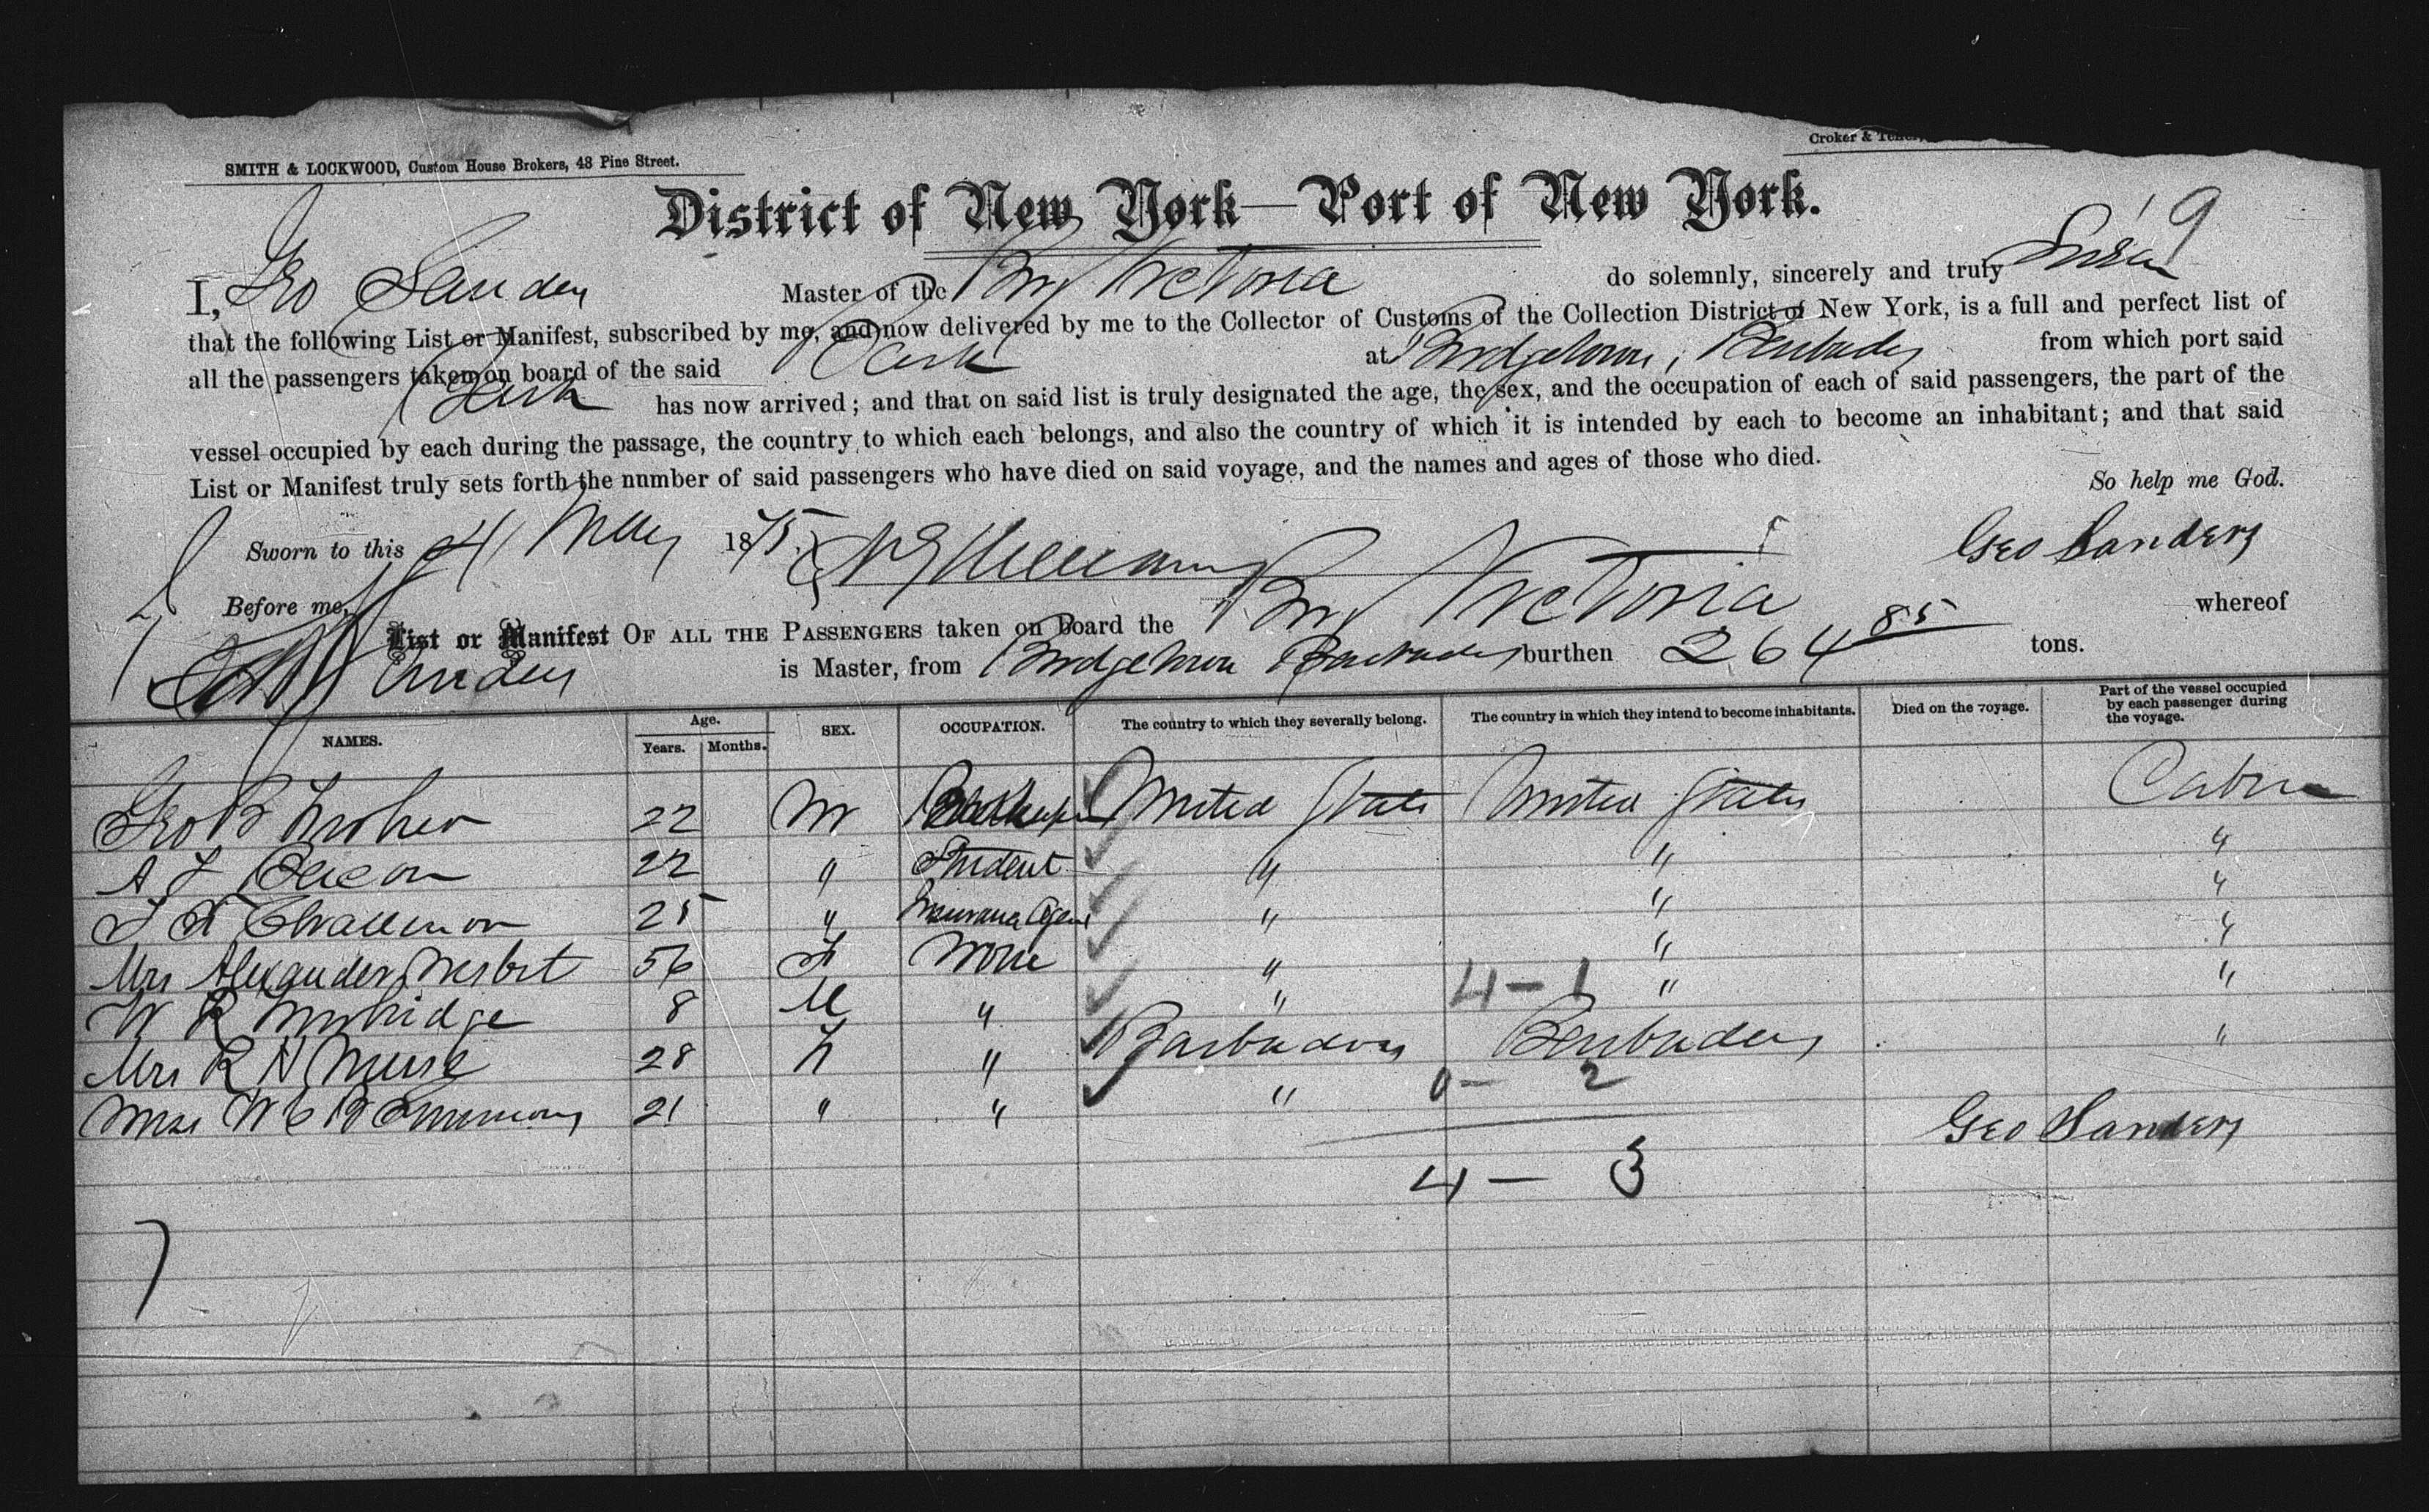 SMITH & LOCKWOOD, Custom House Brokers, 48 Pine Street.
Croker &
District of New York—Port of New York.
9
I, Geo Sanders Master of the Victoria do solemnly, sincerely and truly Swear
that the following List or Manifest, subscribed by me, and now delivered by me to the Collector of Customs of the Collection District of New York, is a full and perfect list of
all the passengers taken on board of the said at Bridgetown, Barbados from which port said
has now arrived; and that on said list is truly designated the age, the sex, and the occupation of each of said passengers, the part of the
vessel occupied by each during the passage, the country to which each belongs, and also the country of which it is intended by each to become an inhabitant; and that said
List or Manifest truly sets forth the number of said passengers who have died on said voyage, and the names and ages of those who died.
So help me God.
Sworn to this 4 May 1875. Geo Sanders
Before me,
List or Manifest OF ALL THE PASSENGERS taken on board the Victoria whereof
Sanders is Master, from Bridgetown Barbados burthen 264 85 tons.
NAMES. Age. Years. Months. SEX. OCCUPATION. The country to which they severally belong. The country in which they intend to become inhabitants. Died on the voyage. Part of the vessel occupied by each passenger during the voyage.
Geo B 22 M Bookkeeper United States United States Cabin
A 22 " Student " " "
25 " Insurance Agent " " "
Mrs Alexander Nesbit 56 F None " " "
W R 8 M " " 4 - 1 " "
Mrs R N 28 F " Barbados Barbados "
W 21 " " " 0 - 2
Geo Sanders
4 - 3
7